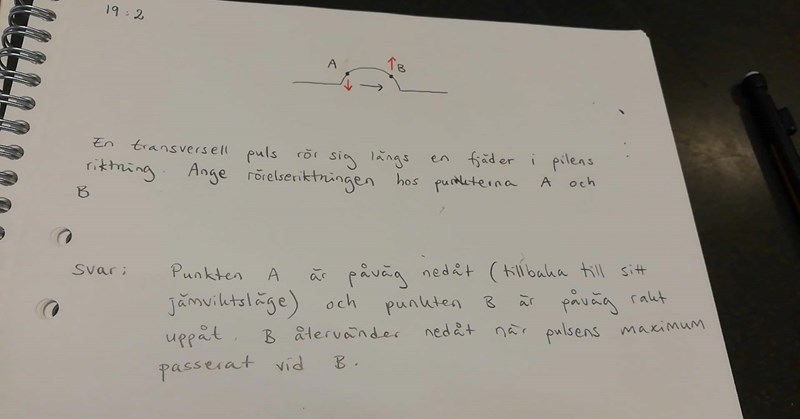 19:2
A B
En transversell puls rör sig längs en fjäder i pilens
riktning. Ange rörelseriktningen hos punkterna A och
B
Svar: Punkten A är påväg nedåt (tillbaka till sitt
jämviktsläge) och punkten B är påväg rakt
uppåt. B återvänder nedåt när pulsens maximum
passerat vid B.